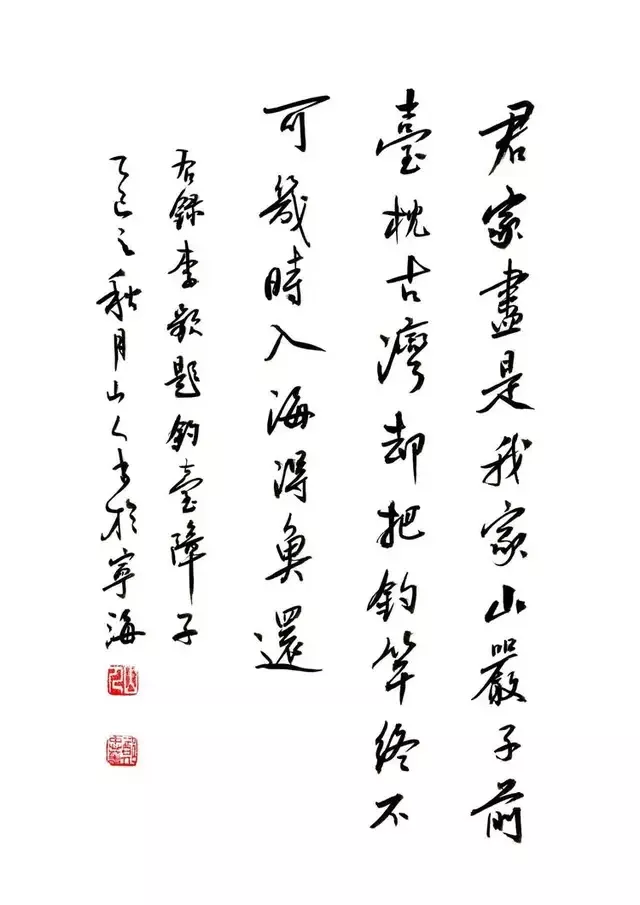 君家盡是我家山嚴子前
臺枕古灣却把釣竿終不
可幾時入海得魚還
右錄李郢題釣臺障子
乙巳之秋月山人書於寧海